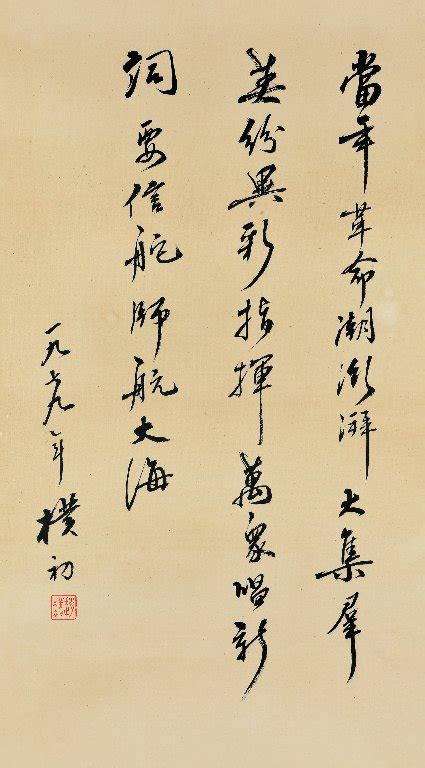 當年革命潮澎湃大集羣
英紛異彩指揮萬衆唱新
詞要信舵師航大海
一九七九年
樸初